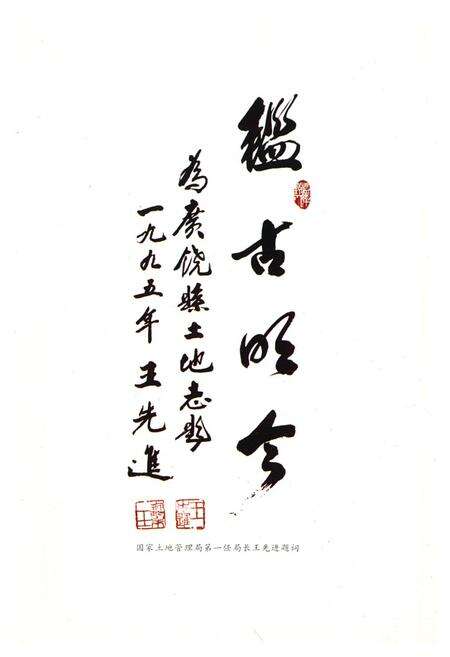 鑑古明今
為廣饶縣土地志題
一九九五年 王先進
国家土地管理局第一任局长王先进题词